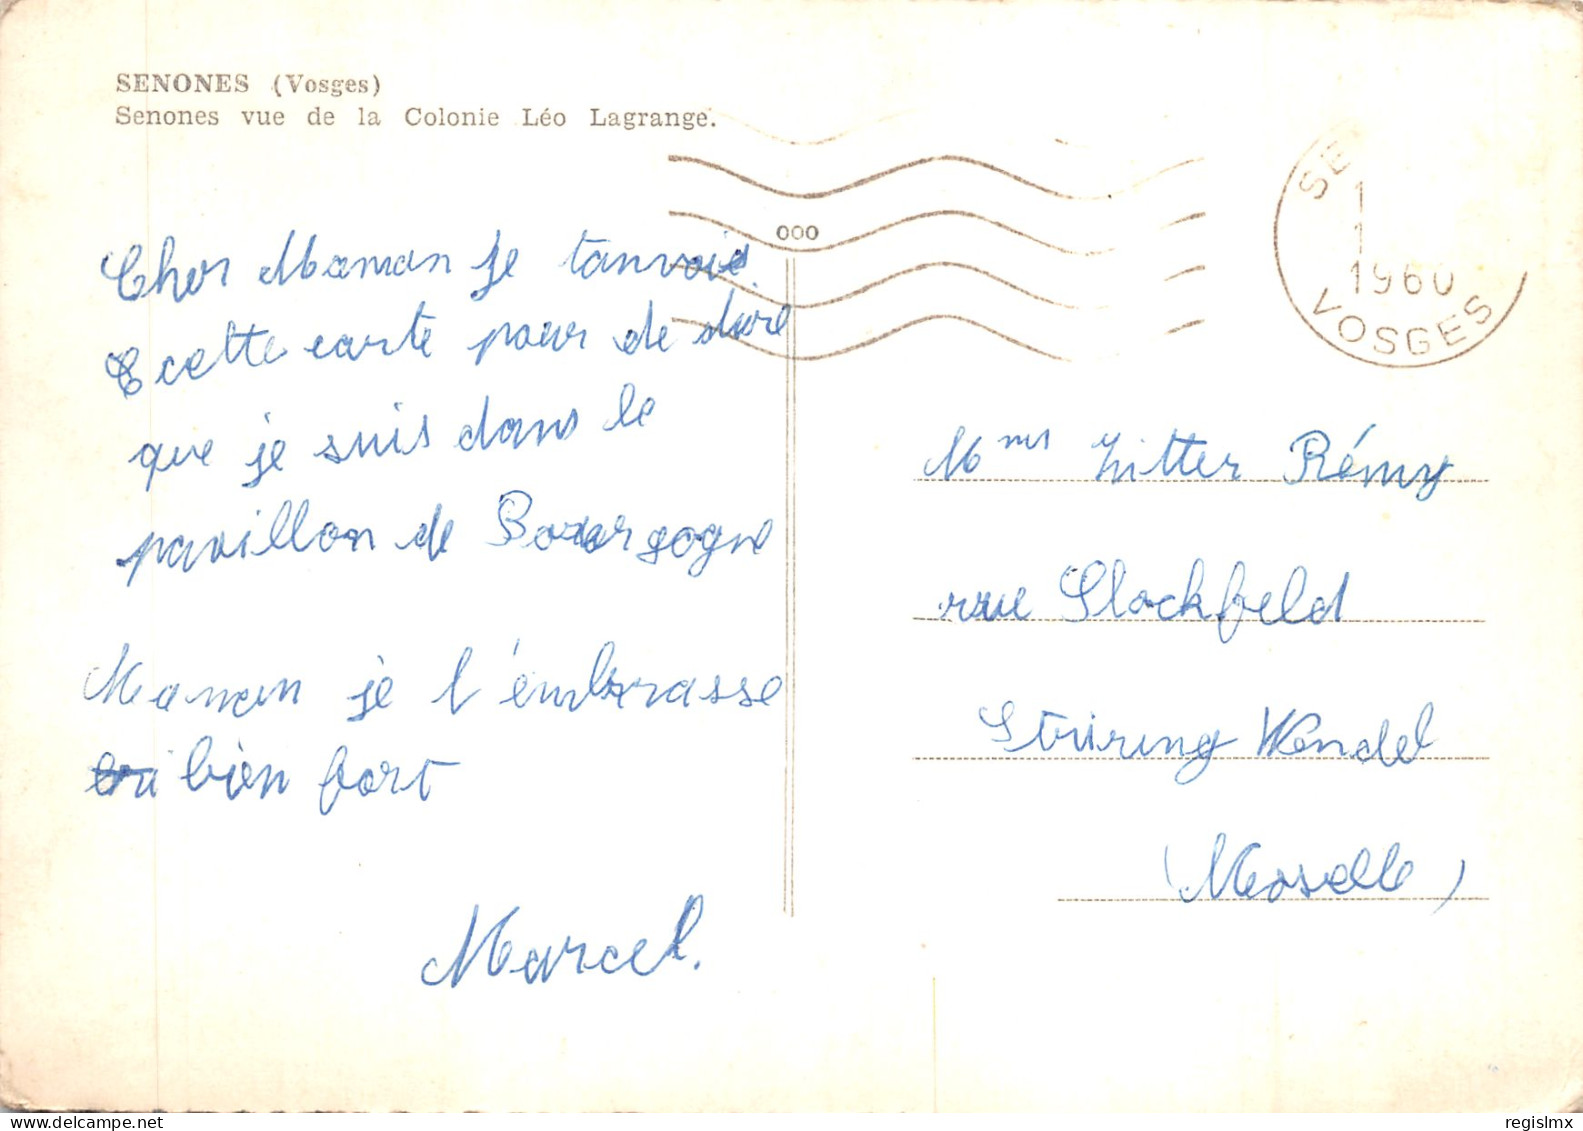 SENONES (Vosges)
Senones vue de la Colonie Léo Lagrange.
000
SE
1
1
1960
VOSGES
Cher Maman je tanvoie
cette carte pour de dire
que je suis dans le
pavillon de Bourgogne
Maman je l'embrasse
bien fort
Marcel.
Mme Zitter Rémy
rue Slockfeld
Stiring Wendel
(Moselle)
regislmx